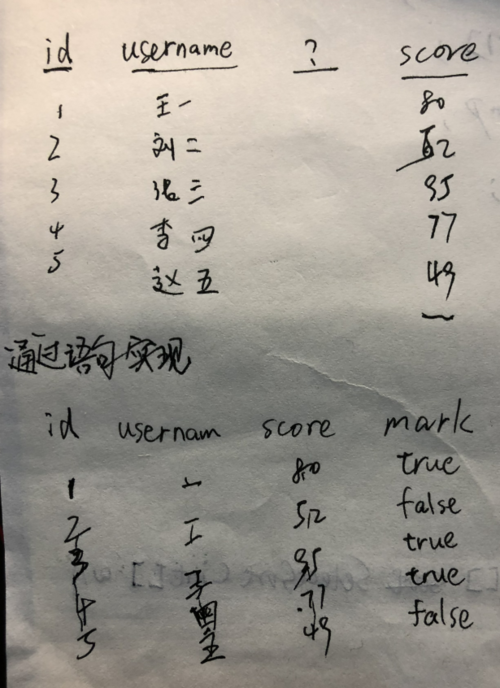 id username ? score
1 王一 80
2 刘二 52
3 张三 95
4 李四 77
5 赵五 49
通过语句实现
id usernam score mark
1 一 80 true
2 52 false
3 95 true
4 四 77 true
5 五 49 false